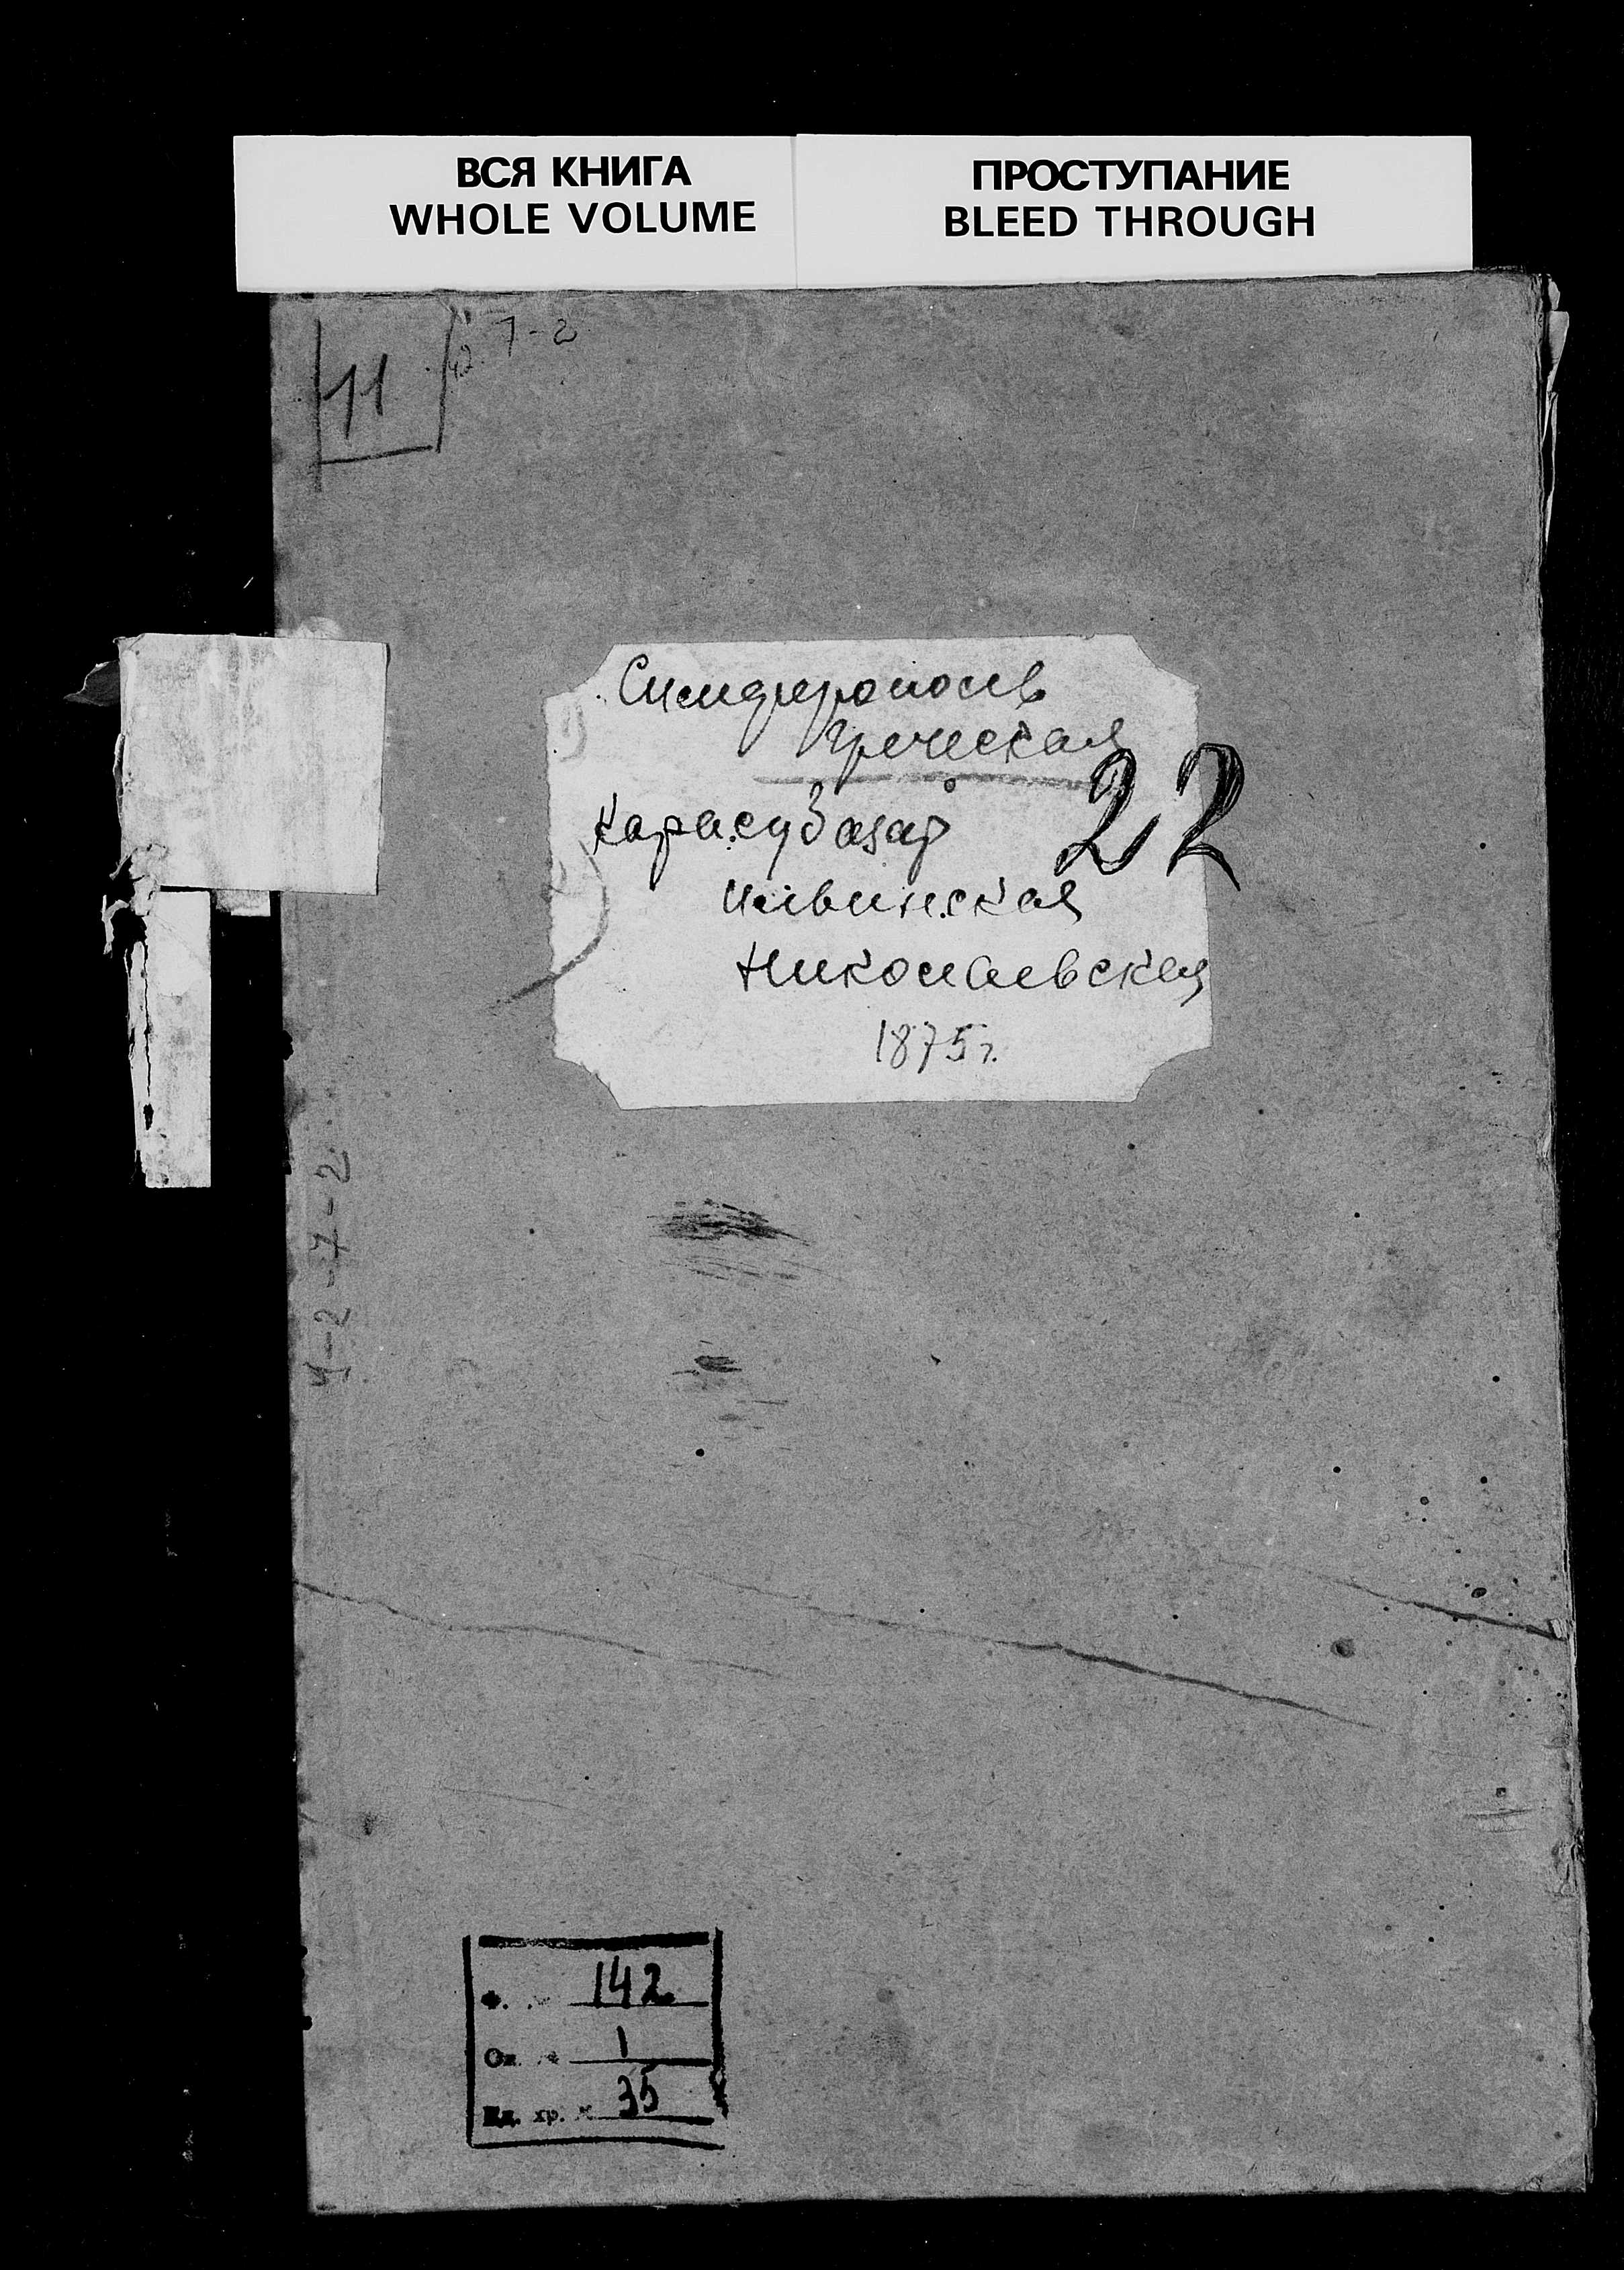 ВСЯ КНИГА
WHOLE VOLUME
ПРОСТУПАНИЕ
BLEED THROUGH
7-2
11
Симферополь
Греческая
Карасубазар
22
Николаевская
1875 г.
4-2-7-2
Ф. 142
Оп. 1
Ед. хр. 35